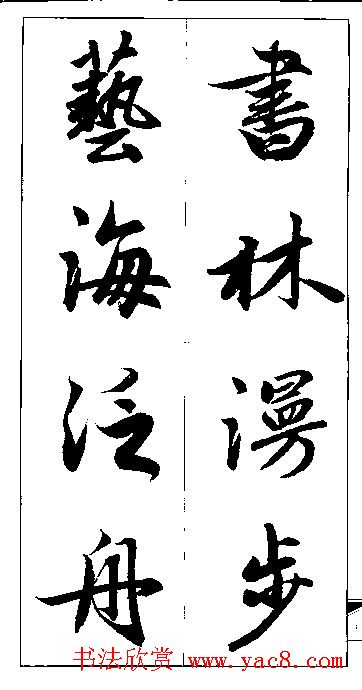 書林漫步
藝海泛舟
书法欣赏 www.yac8.com